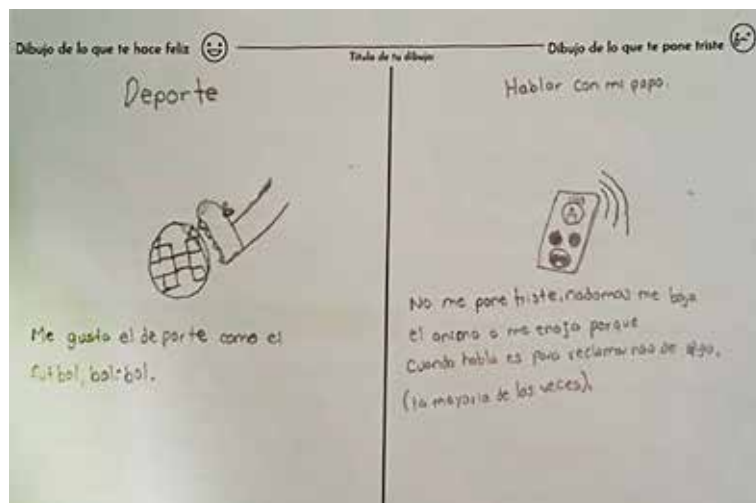 Dibujo de lo que te hace feliz
Titulo de tu dibujo:
Dibujo de lo que te pone triste
Deporte
Me gusta el deporte como el
futbol, bolibol.
Hablar con mi papa.
No me pone triste, nadamas me baja
el animo o me enoja porque
Cuando habla es para reclamarnos de algo.
(la mayoria de las veces).